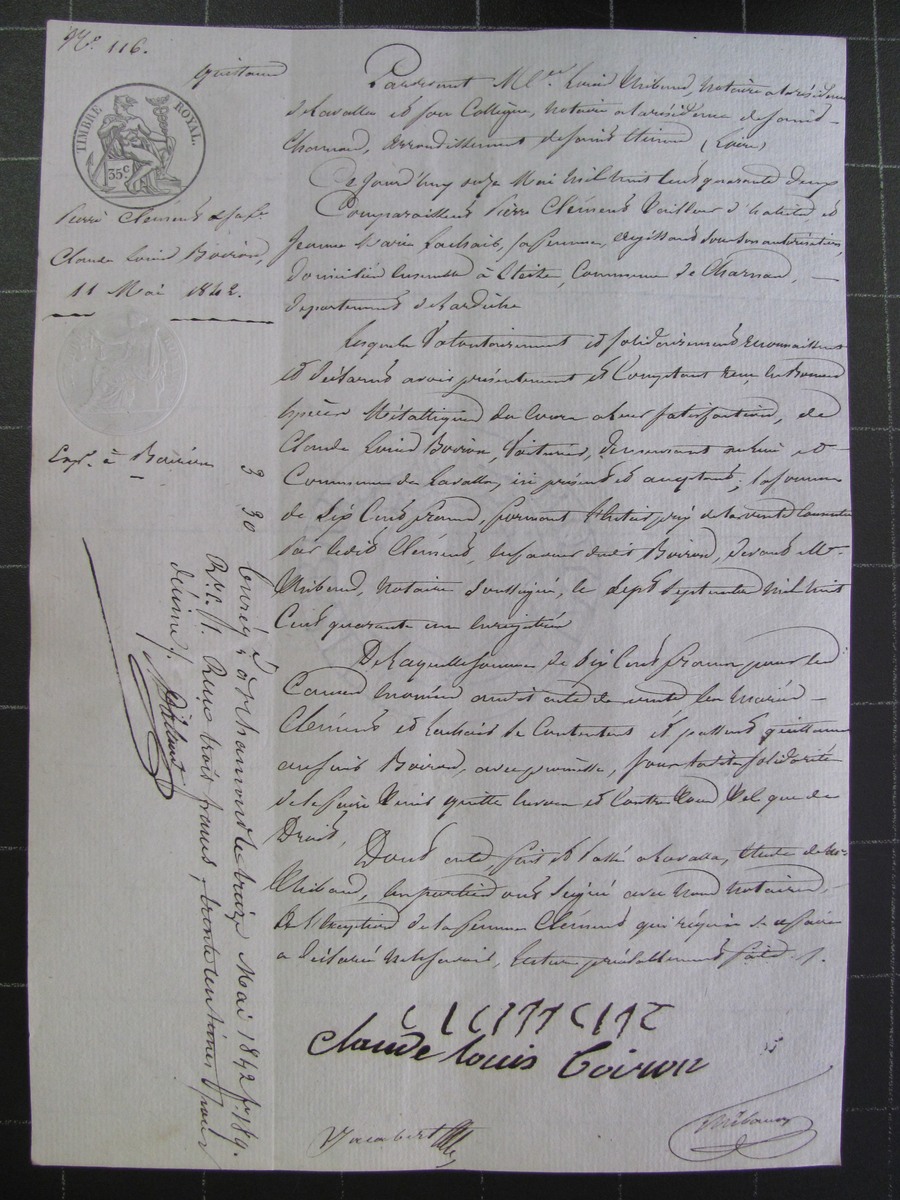 N.º 116.
quittance
TIMBRE ROYAL.
35 c
Pierre Clément &
Claude Louis Boiron,
11 Mai 1842.
Exp. à Boiron
Pardevant M.es Louis Thibaud, notaire à la résidence
de Lavalla et son Collègue, notaire à la résidence de Saint-
Chamond, arrondissement de Saint Etienne (Loire)
Ce jourd'huy onze Mai mil huit cent quarante deux
Comparaissent Pierre Clément Tailleur d'habits, et
Jeanne Marie Lachais, sa femme, agissant sous son autorisation,
domiciliés ensemble à Commune de Charnas,
département de l'ardèche
Lesquels Volontairement et solidairement reconnaissent
et déclarent avoir présentement et Comptant reçu en bonnes
espèces Métalliques du Cours à leur satisfaction, de
Claude Louis Boiron, Voiturier, demeurant au lieu et
Commune de Lavalla, ici présent et acceptant, la somme
de Six Cents francs, formant prix de la vente Consentie
par ledit Clément, en faveur dudit Boiron, devant M.e
Thibaud, notaire soussigné, le sept Septembre mil huit
Cent quarante un Enregistrée
De laquelle somme de Six Cents francs pour les
Causes énoncées audit acte de vente les mariés
Clément et Lachais se Contentent et passent quittance
audit Boiron, avec promesse, sous ladite solidarité
de le faire tenir quitte envers et Contre tous tel que de
Droit,
Dont acte fait et Passé à Lavalla, Etude de M.e
Thibaud, les parties ont signé avec nous notaires,
à l'exception de la femme Clément qui requise de ce faire
a déclaré ne le savoir, lecture préalablement faite ./.
Claude Louis Boiron
Thibaud
3 30
Enreg. à St Chamond le treize Mai 1842 f.º 189.
R.º c. 1. Reçu trois francs, trente centimes pour
décime /.